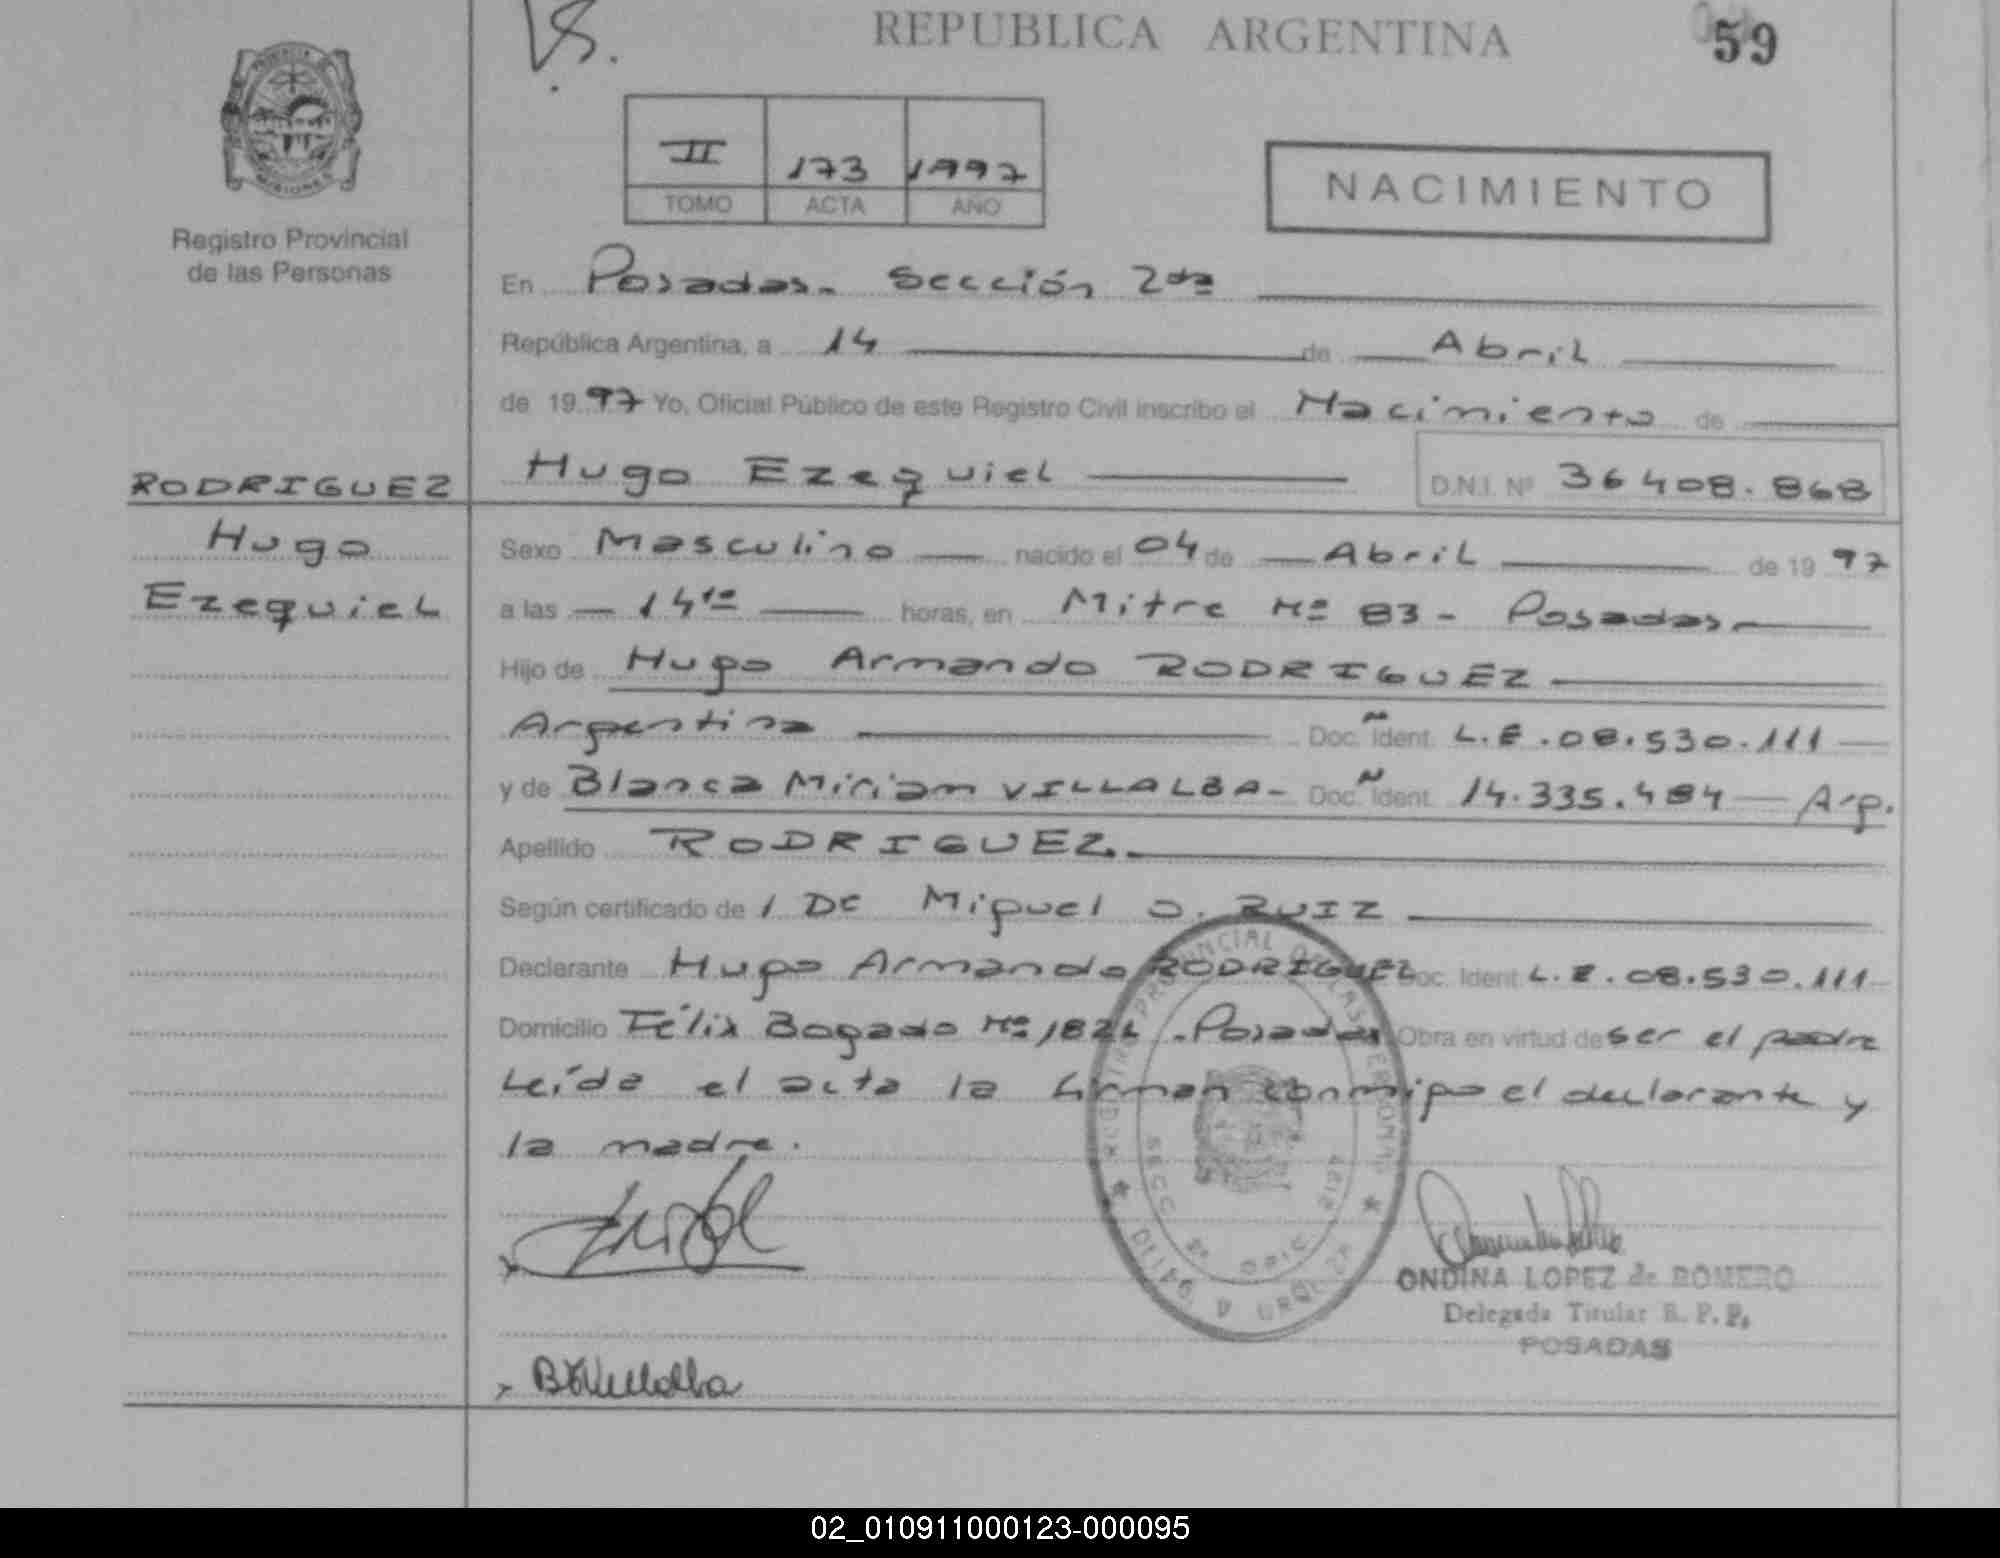 VS.
REPUBLICA ARGENTINA
59
II 173 1997
TOMO ACTA AÑO
NACIMIENTO
Registro Provincial
de las Personas
En Posadas. Sección 2da
República Argentina, a 14 de Abril
de 1997 Yo, Oficial Público de este Registro Civil inscribo el Nacimiento de
Hugo Ezequiel D.N.I. Nº 36408.868
RODRIGUEZ
Hugo
Ezequiel
Sexo Masculino nacido el 04 de Abril de 1997
a las 14 horas, en Mitre Nº 83 - Posadas
Hijo de Hugo Armando RODRIGUEZ
Argentina Doc. Ident. L.E.08.530.111
y de Blanca Miriam VILLALBA- Doc. Ident. 14.335.484 Arg.
Apellido RODRIGUEZ.
Según certificado de / Dc Miguel O. RUIZ
Declarante Hugo Armando RODRIGUEZ Doc. Ident. L.E.08.530.111
Domicilio Félix Bogado Nº 1822 - Posadas Obra en virtud de ser el padre
Leída el acta la firman conmigo el declarante y
la madre.
REGISTRO PROVINCIAL DE LAS PERSONAS
SECC 2º
D URQUIZA
ONDINA LOPEZ de ROMERO
Delegada Titular R. P. P.
POSADAS
BVillalba
02_010911000123-000095